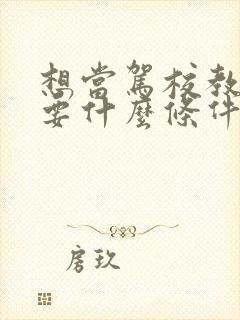 想當駕校教
要什麼條件
房玖